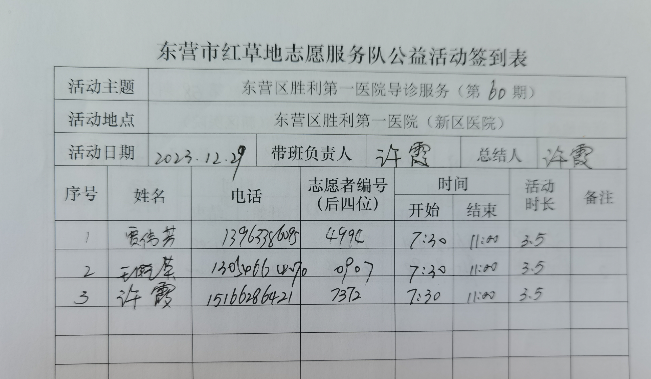 东营市红草地志愿服务队公益活动签到表
活动主题 东营区胜利第一医院导诊服务（第60期）
活动地点 东营区胜利第一医院（新区医院）
活动日期 2023.12.29 带班负责人 许霞 总结人 许霞
序号 姓名 电话 志愿者编号（后四位） 时间 活动时长 备注
开始 结束
1 贾伟芳 4994 7:30 11:00 3.5
2 0907 7:30 11:00 3.5
3 许霞 15166286421 7372 7:30 11:00 3.5